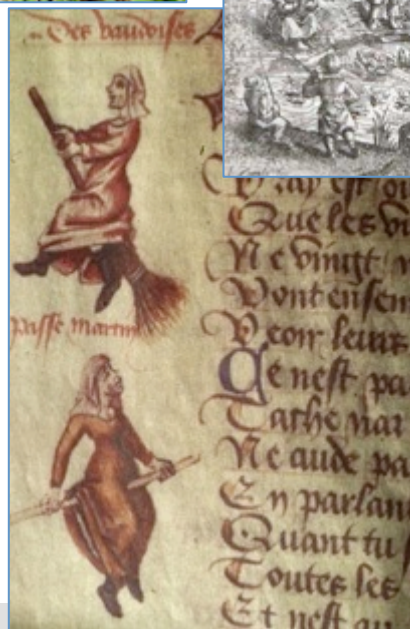 Des vaudoises
passe martin
Vray est
Que les vi
Ne vingt
Vont ensem
Veoir leurs
Ce nest pa
Tache
Ne aude pa
En parlan
Quant tu
Toutes les
Et nest au